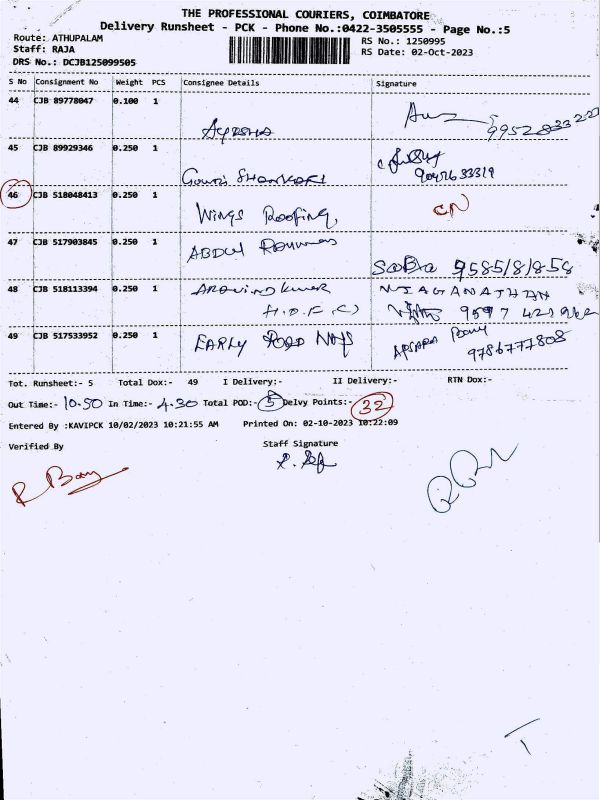 THE PROFESSIONAL COURIERS, COIMBATORE
Delivery Runsheet - PCK - Phone No.:0422-3505555 - Page No.:5
Route: ATHUPALAM
RS No.: 1250995
Staff: RAJA
RS Date: 02-Oct-2023
DRS No.: DCJB125099505
S No Consignment No Weight PCS Consignee Details Signature
44 CJB 89778047 0.100 1
Ayesha
45 CJB 89929346 0.250 1
Gowri Shankari
46 CJB 518048413 0.250 1
Wings Roofing, CN
47 CJB 517903845 0.250 1
ABDUL
48 CJB 518113394 0.250 1
H.D.F.C) N JAGANATHAN
49 CJB 517533952 0.250 1
EARLY ROAD
9786777808
Tot. Runsheet:- 5 Total Dox:- 49 I Delivery:- II Delivery:- RTN Dox:-
Out Time:- 10.50 In Time:- 4.30 Total POD:- 5 Delvy Points:- 32
Entered By :KAVIPCK 10/02/2023 10:21:55 AM Printed On: 02-10-2023 10:22:09
Verified By Staff Signature